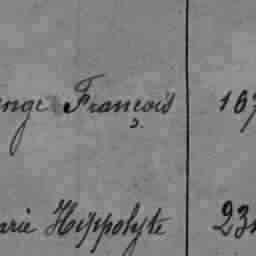 ange François 167
arie Hippolyte 23